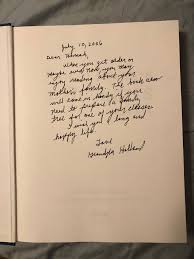 July 10, 2006
Dear Hannah,
When you get older on
maybe and now you may
enjoy reading about your
mother's family. The book also
will come in handy if your
need to prepare a family
tree for one of your classes.
I wish you a long and
happy life.
Love
Grandpa Holland